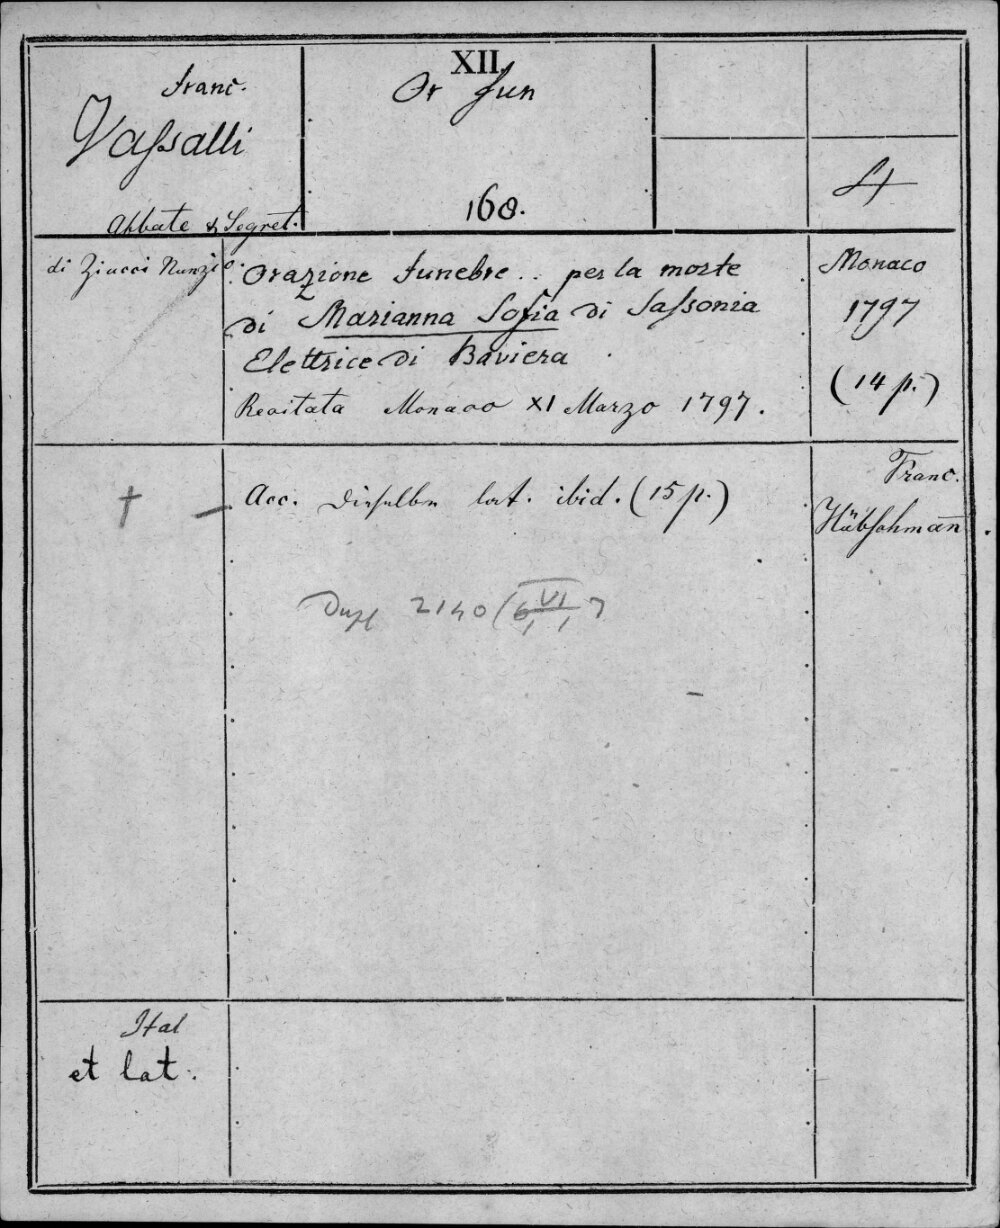 Franc.
Vaſsalli
Abbate & Segret.
di Ziucci Nunzio.
XII.
Or fun
168.
4
Orazione funebre .. per la morte
di Marianna Sofia di Saſsonia
Elettrice di Baviera
Recitata Monaco XI Marzo 1797.
Monaco
1797
(14 p.)
†
Acc. Dieselbe lat. ibid. (15 p.)
Franc.
Hübſchmañ
Dupl 2140 (6 VI, 7
Ital
et lat.